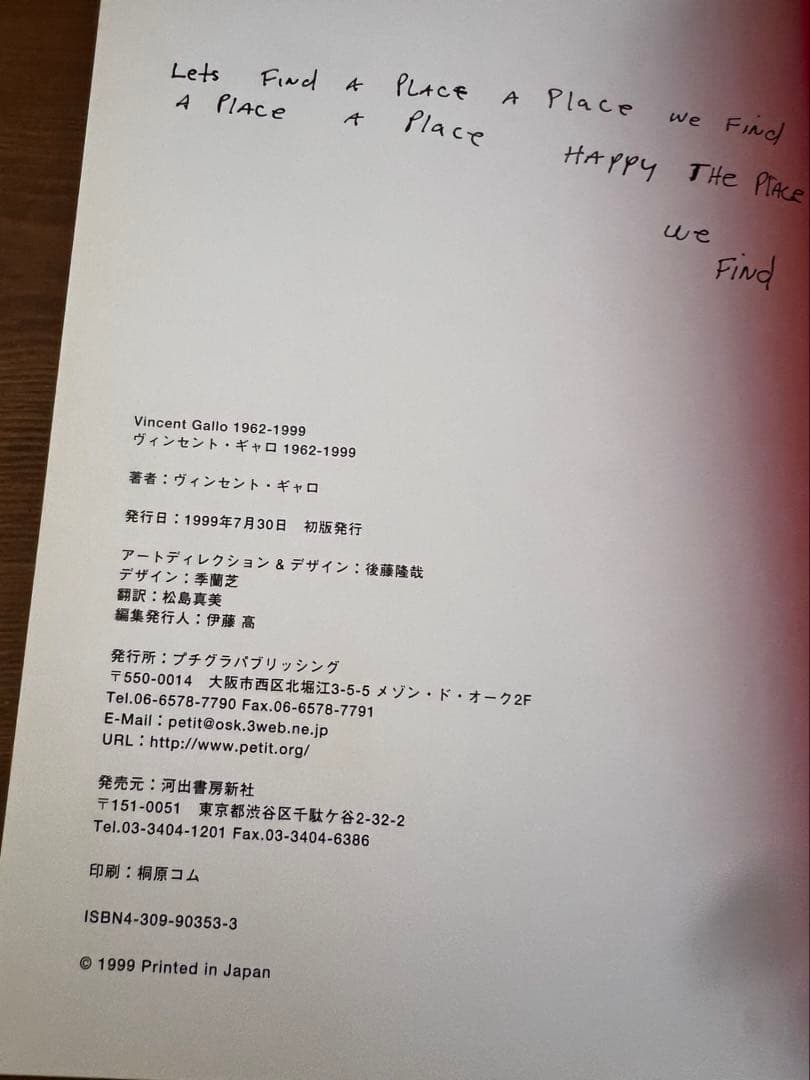 Lets FIND A PLACE A Place we FIND
A PLACE A Place HAPPY THE PLACE
we
FIND
Vincent Gallo 1962-1999
ヴィンセント・ギャロ 1962-1999
著者：ヴィンセント・ギャロ
発行日：1999年7月30日　初版発行
アートディレクション & デザイン：後藤隆哉
デザイン：季蘭芝
翻訳：松島真美
編集発行人：伊藤 高
発行所：プチグラパブリッシング
〒550-0014　大阪市西区北堀江3-5-5 メゾン・ド・オーク2F
Tel.06-6578-7790 Fax.06-6578-7791
E-Mail：petit@osk.3web.ne.jp
URL：http://www.petit.org/
発売元：河出書房新社
〒151-0051　東京都渋谷区千駄ケ谷2-32-2
Tel.03-3404-1201 Fax.03-3404-6386
印刷：桐原コム
ISBN4-309-90353-3
© 1999 Printed in Japan